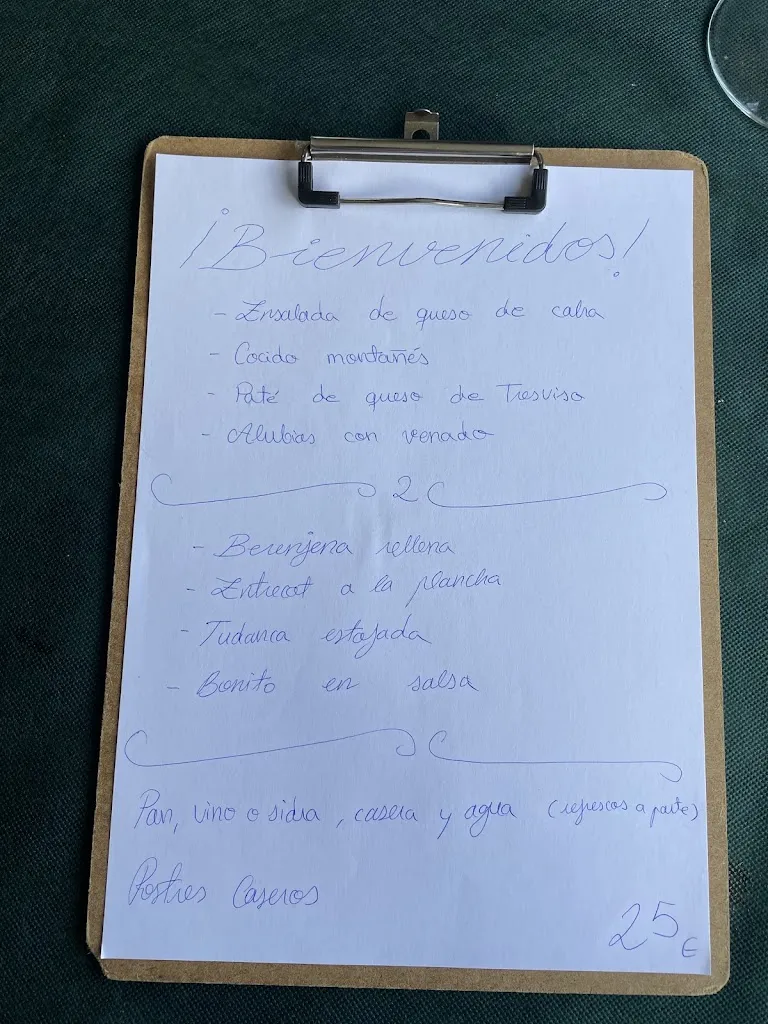 ¡Bienvenidos!
- Ensalada de queso de cabra
- Cocido montañés
- Paté de queso de Tresviso
- Alubias con venado
2
- Berenjena rellena
- Entrecot a la plancha
- Tudanca estofada
- Bonito en salsa
Pan, vino o sidra, casera y agua (refrescos a parte)
Postres Caseros
25 €